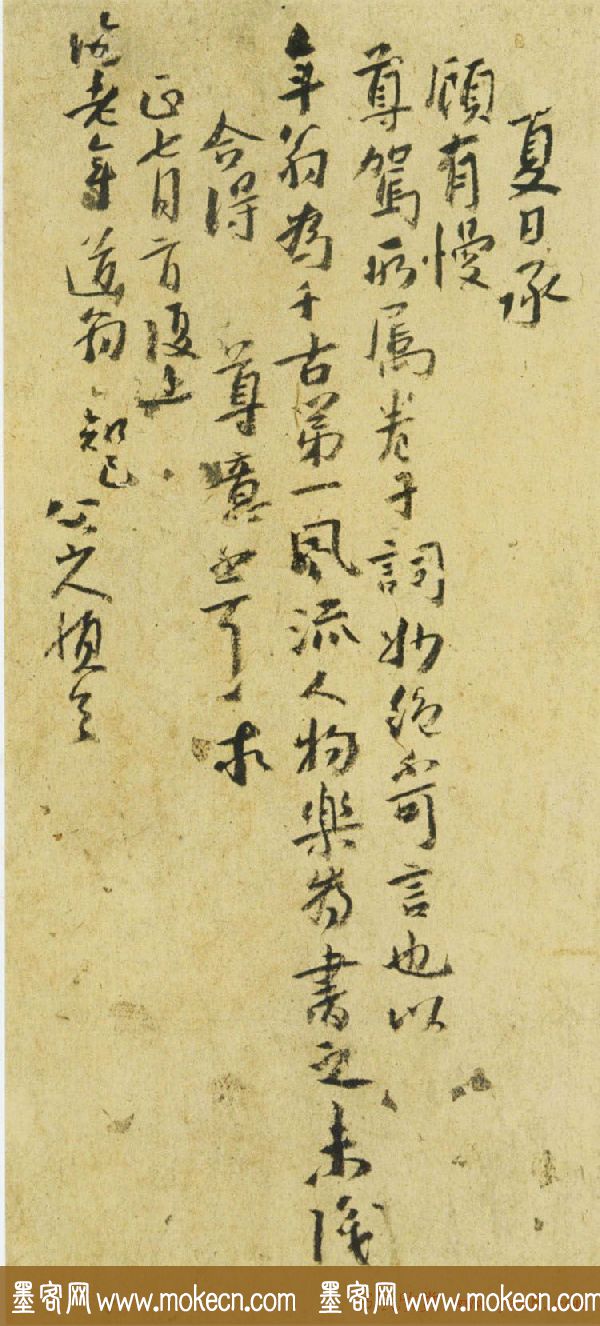 夏日承
顧有慢
尊駕所属卷子詞妙絕不可言也以
年翁為千古第一風流人物樂為書之未識
合得尊意否耳求
正七月方復上
老年道翁知己 八大山人頓首
墨客网 www.mokecn.com 墨客网 www.mokecn.com